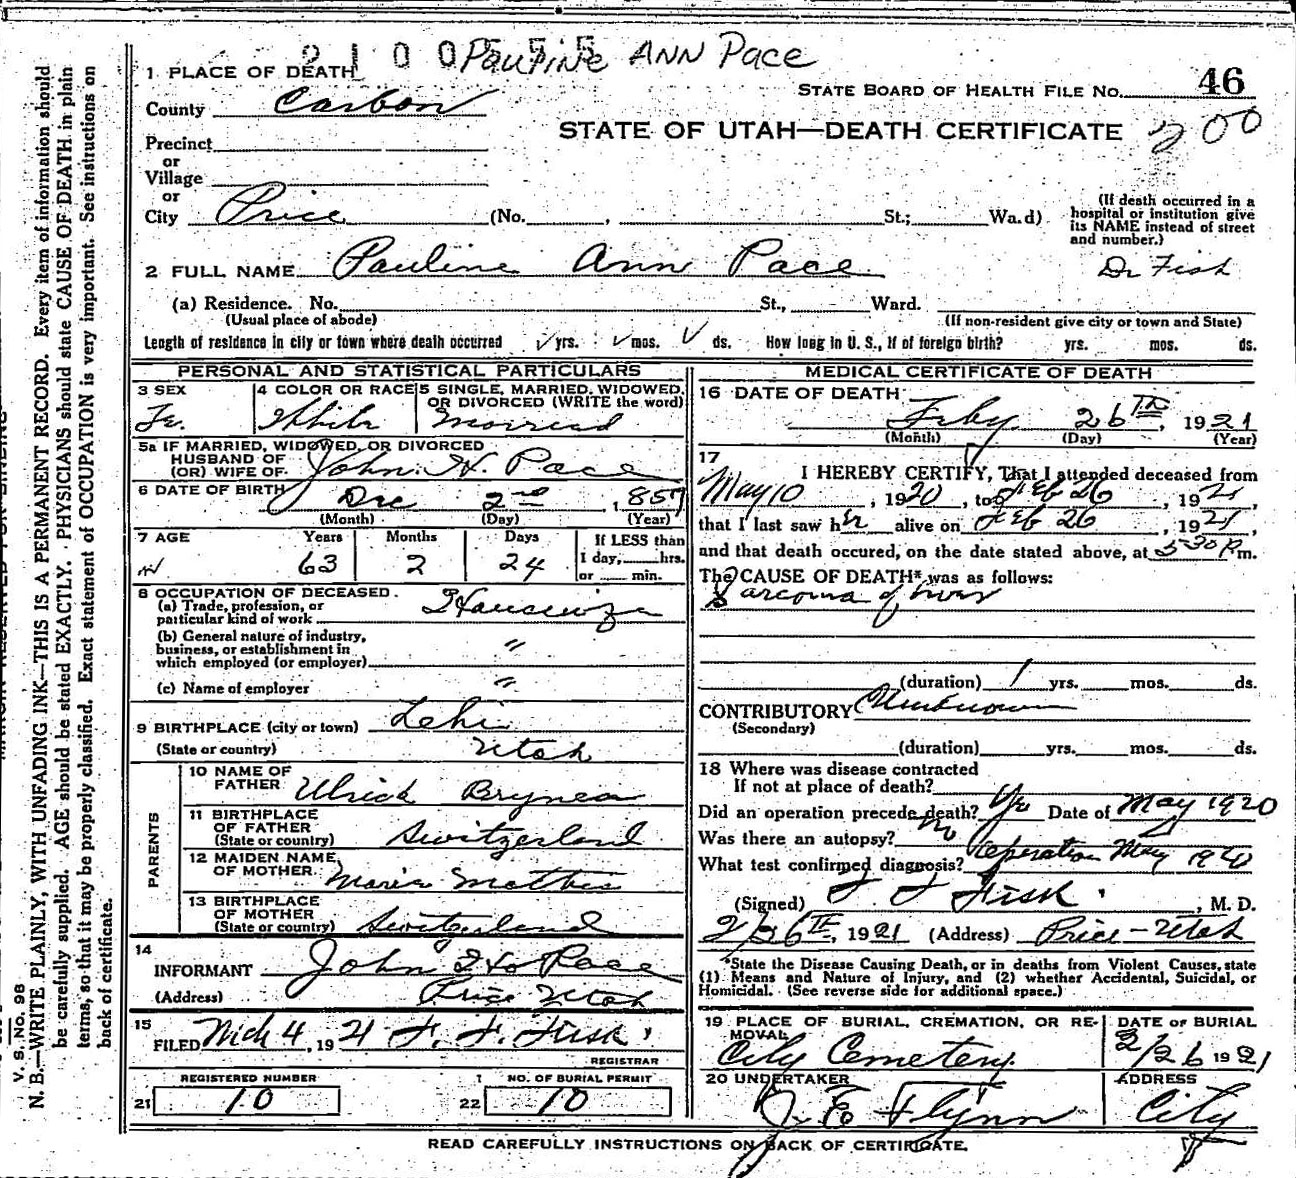 2 1 0 0 5 5 5
Pauline Ann Pace
1 PLACE OF DEATH
County Carbon
STATE BOARD OF HEALTH FILE NO. 46
200
STATE OF UTAH—DEATH CERTIFICATE
Precinct
or
Village
or
City Price (No. , St.; Wa.d)
(If death occurred in a
hospital or institution give
its NAME instead of street
and number.)
2 FULL NAME Pauline Ann Pace
Dr Fisk
(a) Residence. No. St., Ward.
(Usual place of abode) (If non-resident give city or town and State)
Length of residence in city or town where death occurred ✓ yrs. ✓ mos. ✓ ds. How long in U. S., if of foreign birth? yrs. mos. ds.
PERSONAL AND STATISTICAL PARTICULARS
3 SEX 4 COLOR OR RACE 5 SINGLE, MARRIED, WIDOWED,
OR DIVORCED (WRITE the word)
Fe. White Married
5a IF MARRIED, WIDOWED, OR DIVORCED
HUSBAND OF
(OR) WIFE OF John H. Pace
6 DATE OF BIRTH Dec 2nd, 1857
(Month) (Day) (Year)
7 AGE Years Months Days If LESS than
63 2 24 1 day, hrs.
or min.
8 OCCUPATION OF DECEASED.
(a) Trade, profession, or
particular kind of work Housewife
(b) General nature of industry,
business, or establishment in
which employed (or employer) "
(c) Name of employer "
9 BIRTHPLACE (city or town) Lehi
(State or country) Utah
PARENTS
10 NAME OF
FATHER Ulrich Bryner
11 BIRTHPLACE
OF FATHER
(State or country) Switzerland
12 MAIDEN NAME
OF MOTHER Maria Mathis
13 BIRTHPLACE
OF MOTHER
(State or country) Switzerland
14
INFORMANT John H. Pace
(Address) Price Utah
15
FILED Mch 4, 1921 F. F. Fisk
REGISTRAR
REGISTERED NUMBER NO. OF BURIAL PERMIT
21 10 22 10
MEDICAL CERTIFICATE OF DEATH
16 DATE OF DEATH
Feby 26TH, 1921
(Month) (Day) (Year)
17
I HEREBY CERTIFY, That I attended deceased from
May 10, 1920, to Feb 26, 1921,
that I last saw her alive on Feb 26, 1921,
and that death occured, on the date stated above, at 5-30 P m.
The CAUSE OF DEATH* was as follows:
Sarcoma of
(duration) 1 yrs. mos. ds.
CONTRIBUTORY Unknown
(Secondary)
(duration) yrs. mos. ds.
18 Where was disease contracted
If not at place of death?
Did an operation precede death? Yes Date of May 1920
Was there an autopsy? No
What test confirmed diagnosis? Operation May 1920
(Signed) F. F. Fisk, M. D.
2/26TH, 1921 (Address) Price - Utah
*State the Disease Causing Death, or in deaths from Violent Causes, state
(1) Means and Nature of Injury, and (2) whether Accidental, Suicidal, or
Homicidal. (See reverse side for additional space.)
19 PLACE OF BURIAL, CREMATION, OR RE-
MOVAL
DATE OF BURIAL
City Cemetery. 2/26 1921
20 UNDERTAKER ADDRESS
J. E. Flynn City
READ CAREFULLY INSTRUCTIONS ON BACK OF CERTIFICATE.
V. S. No. 98
N. B.—WRITE PLAINLY, WITH UNFADING INK—THIS IS A PERMANENT RECORD. Every item of information should
be carefully supplied. AGE should be stated EXACTLY. PHYSICIANS should state CAUSE OF DEATH in plain
terms, so that it may be properly classified. Exact statement of OCCUPATION is very important. See instructions on
back of certificate.